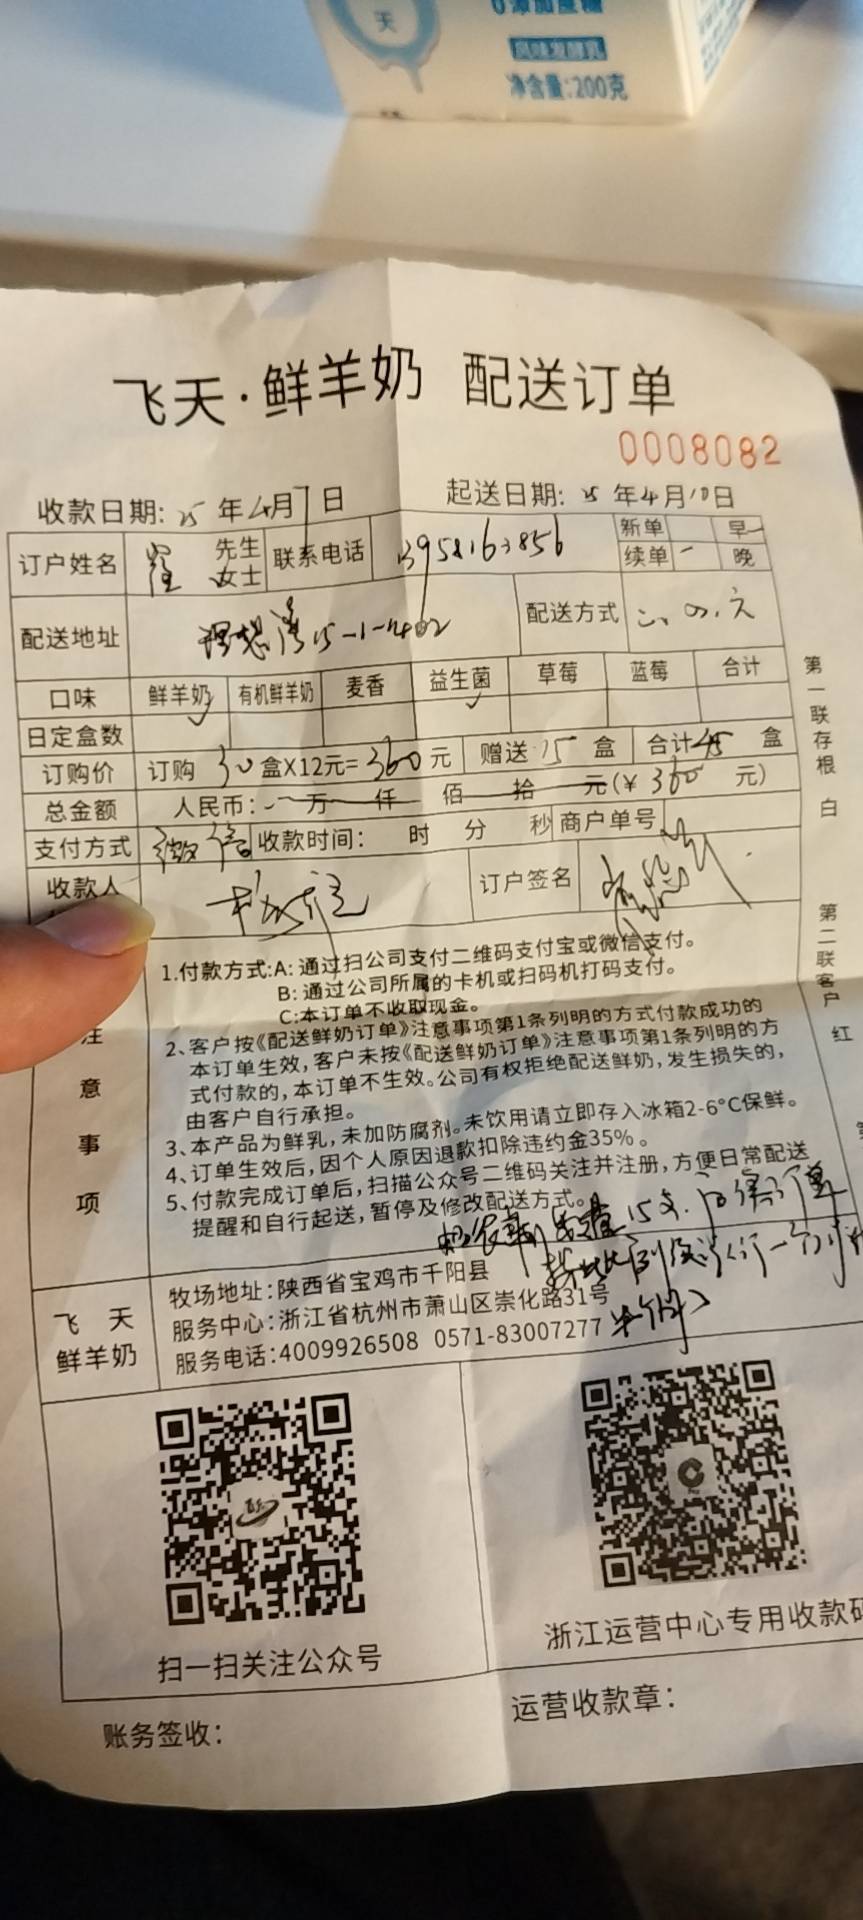 天
0添加蔗糖
风味发酵乳
净含量:200克
飞天·鲜羊奶 配送订单
0008082
收款日期: 25 年 4 月 7 日 起送日期: 25 年 4 月 10 日
订户姓名 先生 女士 联系电话 13958163856 新单 续单 早 晚
配送地址 理想湾15-1-1402 配送方式 二、四、六
口味 鲜羊奶 有机鲜羊奶 麦香 益生菌 草莓 蓝莓 合计
日定盒数
订购价 订购 30 盒X12元= 360 元 赠送 15 盒 合计 45 盒
总金额 人民币: 万 仟 佰 拾 元(¥ 360 元)
支付方式 微信 收款时间: 时 分 秒 商户单号
收款人 订户签名
注意事项
1.付款方式:A: 通过扫公司支付二维码支付宝或微信支付。
B: 通过公司所属的卡机或扫码机打码支付。
C:本订单不收取现金。
2、客户按《配送鲜奶订单》注意事项第1条列明的方式付款成功的
本订单生效,客户未按《配送鲜奶订单》注意事项第1条列明的方
式付款的,本订单不生效。公司有权拒绝配送鲜奶,发生损失的,
由客户自行承担。
3、本产品为鲜乳,未加防腐剂。未饮用请立即存入冰箱2-6°C保鲜。
4、订单生效后,因个人原因退款扣除违约金35%。
5、付款完成订单后,扫描公众号二维码关注并注册,方便日常配送
提醒和自行起送,暂停及修改配送方式。
飞天
鲜羊奶
牧场地址:陕西省宝鸡市千阳县
服务中心:浙江省杭州市萧山区崇化路31号
服务电话:4009926508 0571-83007277
扫一扫关注公众号
浙江运营中心专用收款码
账务签收:
运营收款章:
第一联存根 白
第二联客户 红